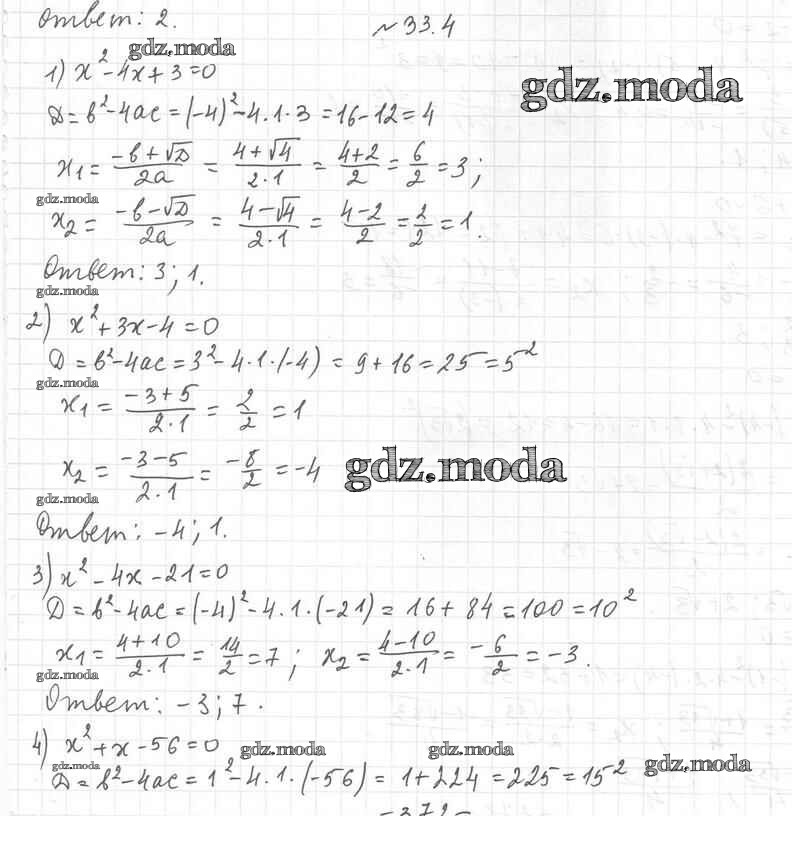 Ответ: 2.
№ 33.4
gdz.moda
1) x² - 4x + 3 = 0
gdz.moda
D = b² - 4ac = (-4)² - 4·1·3 = 16 - 12 = 4
x₁ = (-b + √D)/(2a) = (4 + √4)/(2·1) = (4+2)/2 = 6/2 = 3;
gdz.moda
x₂ = (-b - √D)/(2a) = (4 - √4)/(2·1) = (4-2)/2 = 2/2 = 1.
Ответ: 3; 1.
gdz.moda
2) x² + 3x - 4 = 0
D = b² - 4ac = 3² - 4·1·(-4) = 9 + 16 = 25 = 5²
gdz.moda
x₁ = (-3+5)/(2·1) = 2/2 = 1
x₂ = (-3-5)/(2·1) = -8/2 = -4
gdz.moda
gdz.moda
Ответ: -4; 1.
3) x² - 4x - 21 = 0
D = b² - 4ac = (-4)² - 4·1·(-21) = 16 + 84 = 100 = 10²
x₁ = (4+10)/(2·1) = 14/2 = 7; x₂ = (4-10)/(2·1) = -6/2 = -3.
gdz.moda
Ответ: -3; 7.
4) x² + x - 56 = 0
gdz.moda
gdz.moda
gdz.moda
gdz.moda
D = b² - 4ac = 1² - 4·1·(-56) = 1 + 224 = 225 = 15²